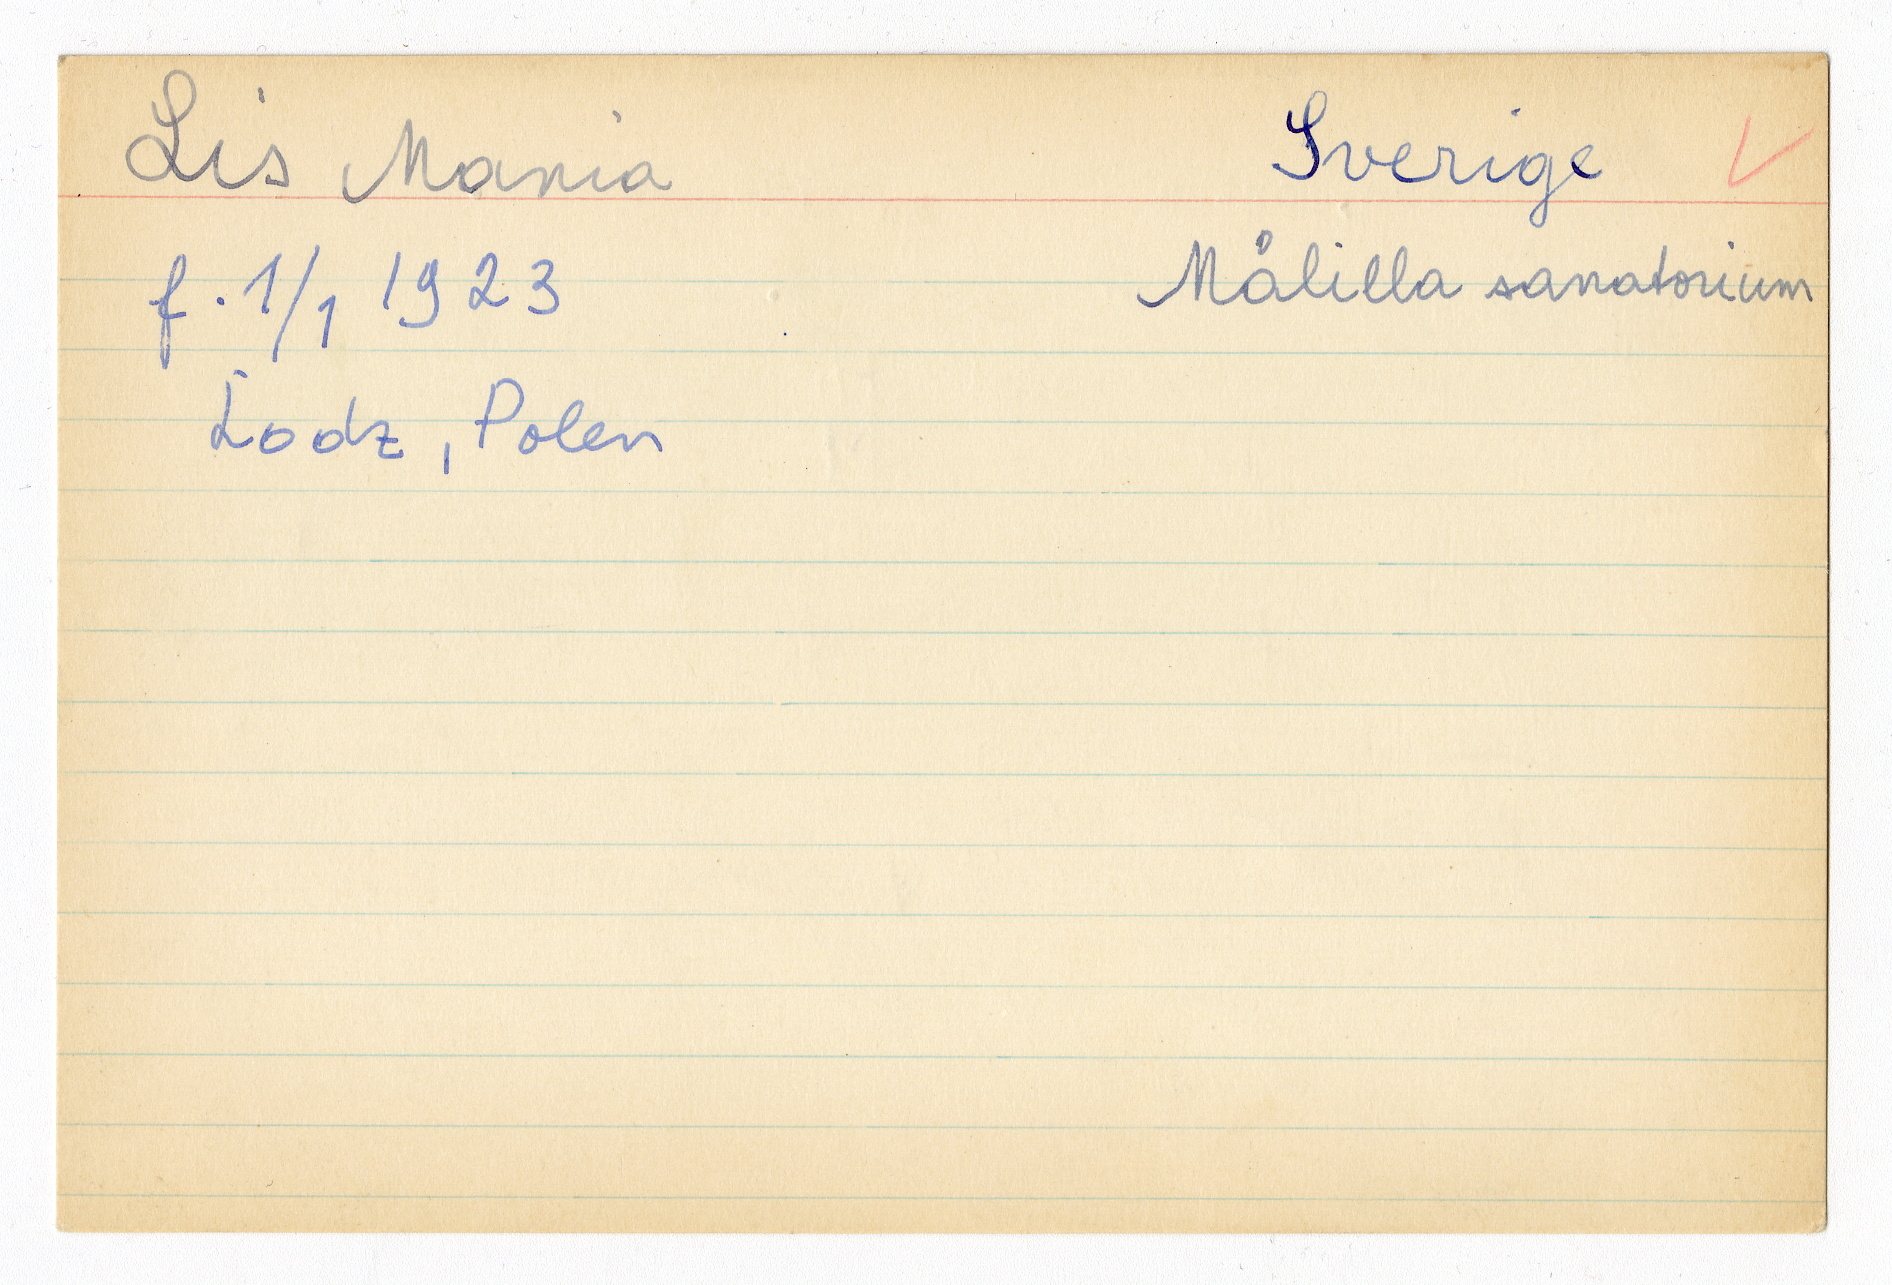 Lis Mania
Sverige
f. 1/1 1923
Målilla sanatorium
Lodz, Polen